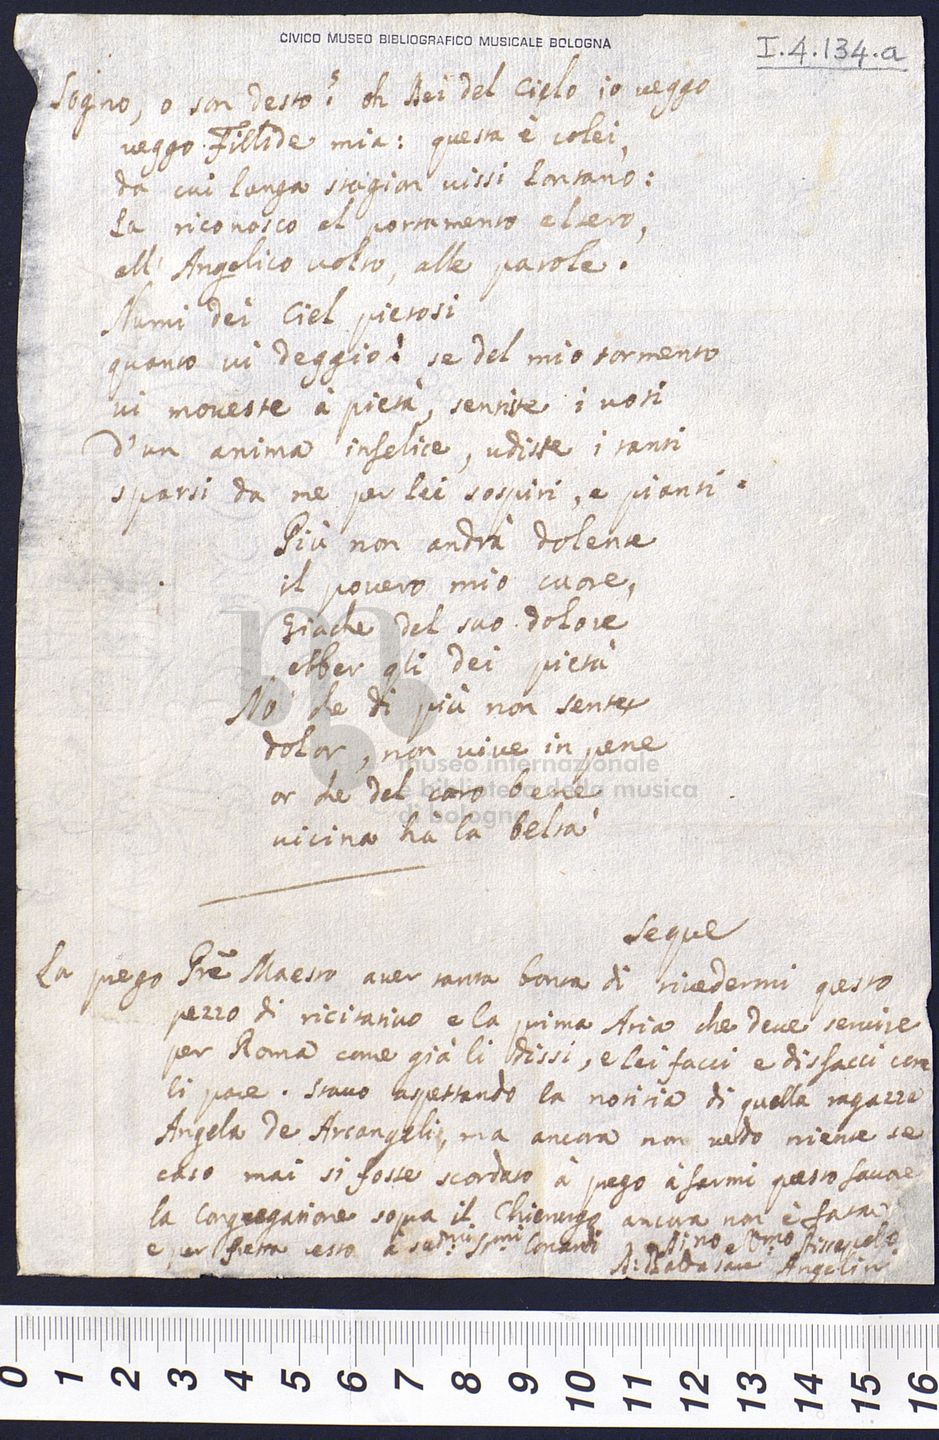 CIVICO MUSEO BIBLIOGRAFICO MUSICALE BOLOGNA
I.4.134.a
Sogno, o son desto? oh Dei del Cielo io veggo
veggo Fillide mia: questa è colei,
da cui lunga stagion vissi lontano:
La riconosco al portamento altero,
all' Angelico volto, alle parole.
Numi dei Ciel pietosi
quanto vi deggio! se del mio tormento
vi moveste à pietà, sentiste i voti
d'un anima infelice, udiste i tanti
sparsi da me per lei sospiri, e pianti.
Più non andrà dolente
il povero mio cuore,
Giache del suo dolore
ebber gli dei pietà
Nò che di più non sente
dolor, non vive in pene
or che del caro bene
vicina hà la beltà
museo internazionale
e biblioteca della musica
di bologna
Segue
La prego Pre Maestro aver tanta bontà di rivedermi questo
pezzo di ricitativo e la prima Aria che deve servire
per Roma come già li dissi, e lei facci e disfacci come
li pare. Stavo aspettando la notitia di quella ragazza
Angela de Arcangeli, ma ancora non vedo niente se
caso mai si fosse scordato à prego à farmi questo favore
la Congregatione sopra il ancora non è fatta
e per fretta resto à suoi Comandi
Baldasare Angelini
0 1 2 3 4 5 6 7 8 9 10 11 12 13 14 15 16